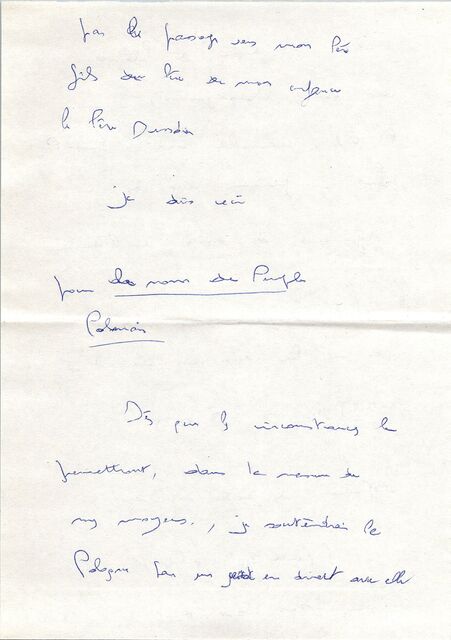 par le passage vers mon Père
fils du Père de mon enfance
le Père
je dis ceci
pour des noms de Peuple
Polonais
Dès que les circonstances le
permettront, dans la mesure de
mes moyens, je soutiendrai la
Pologne par un en direct avec elle